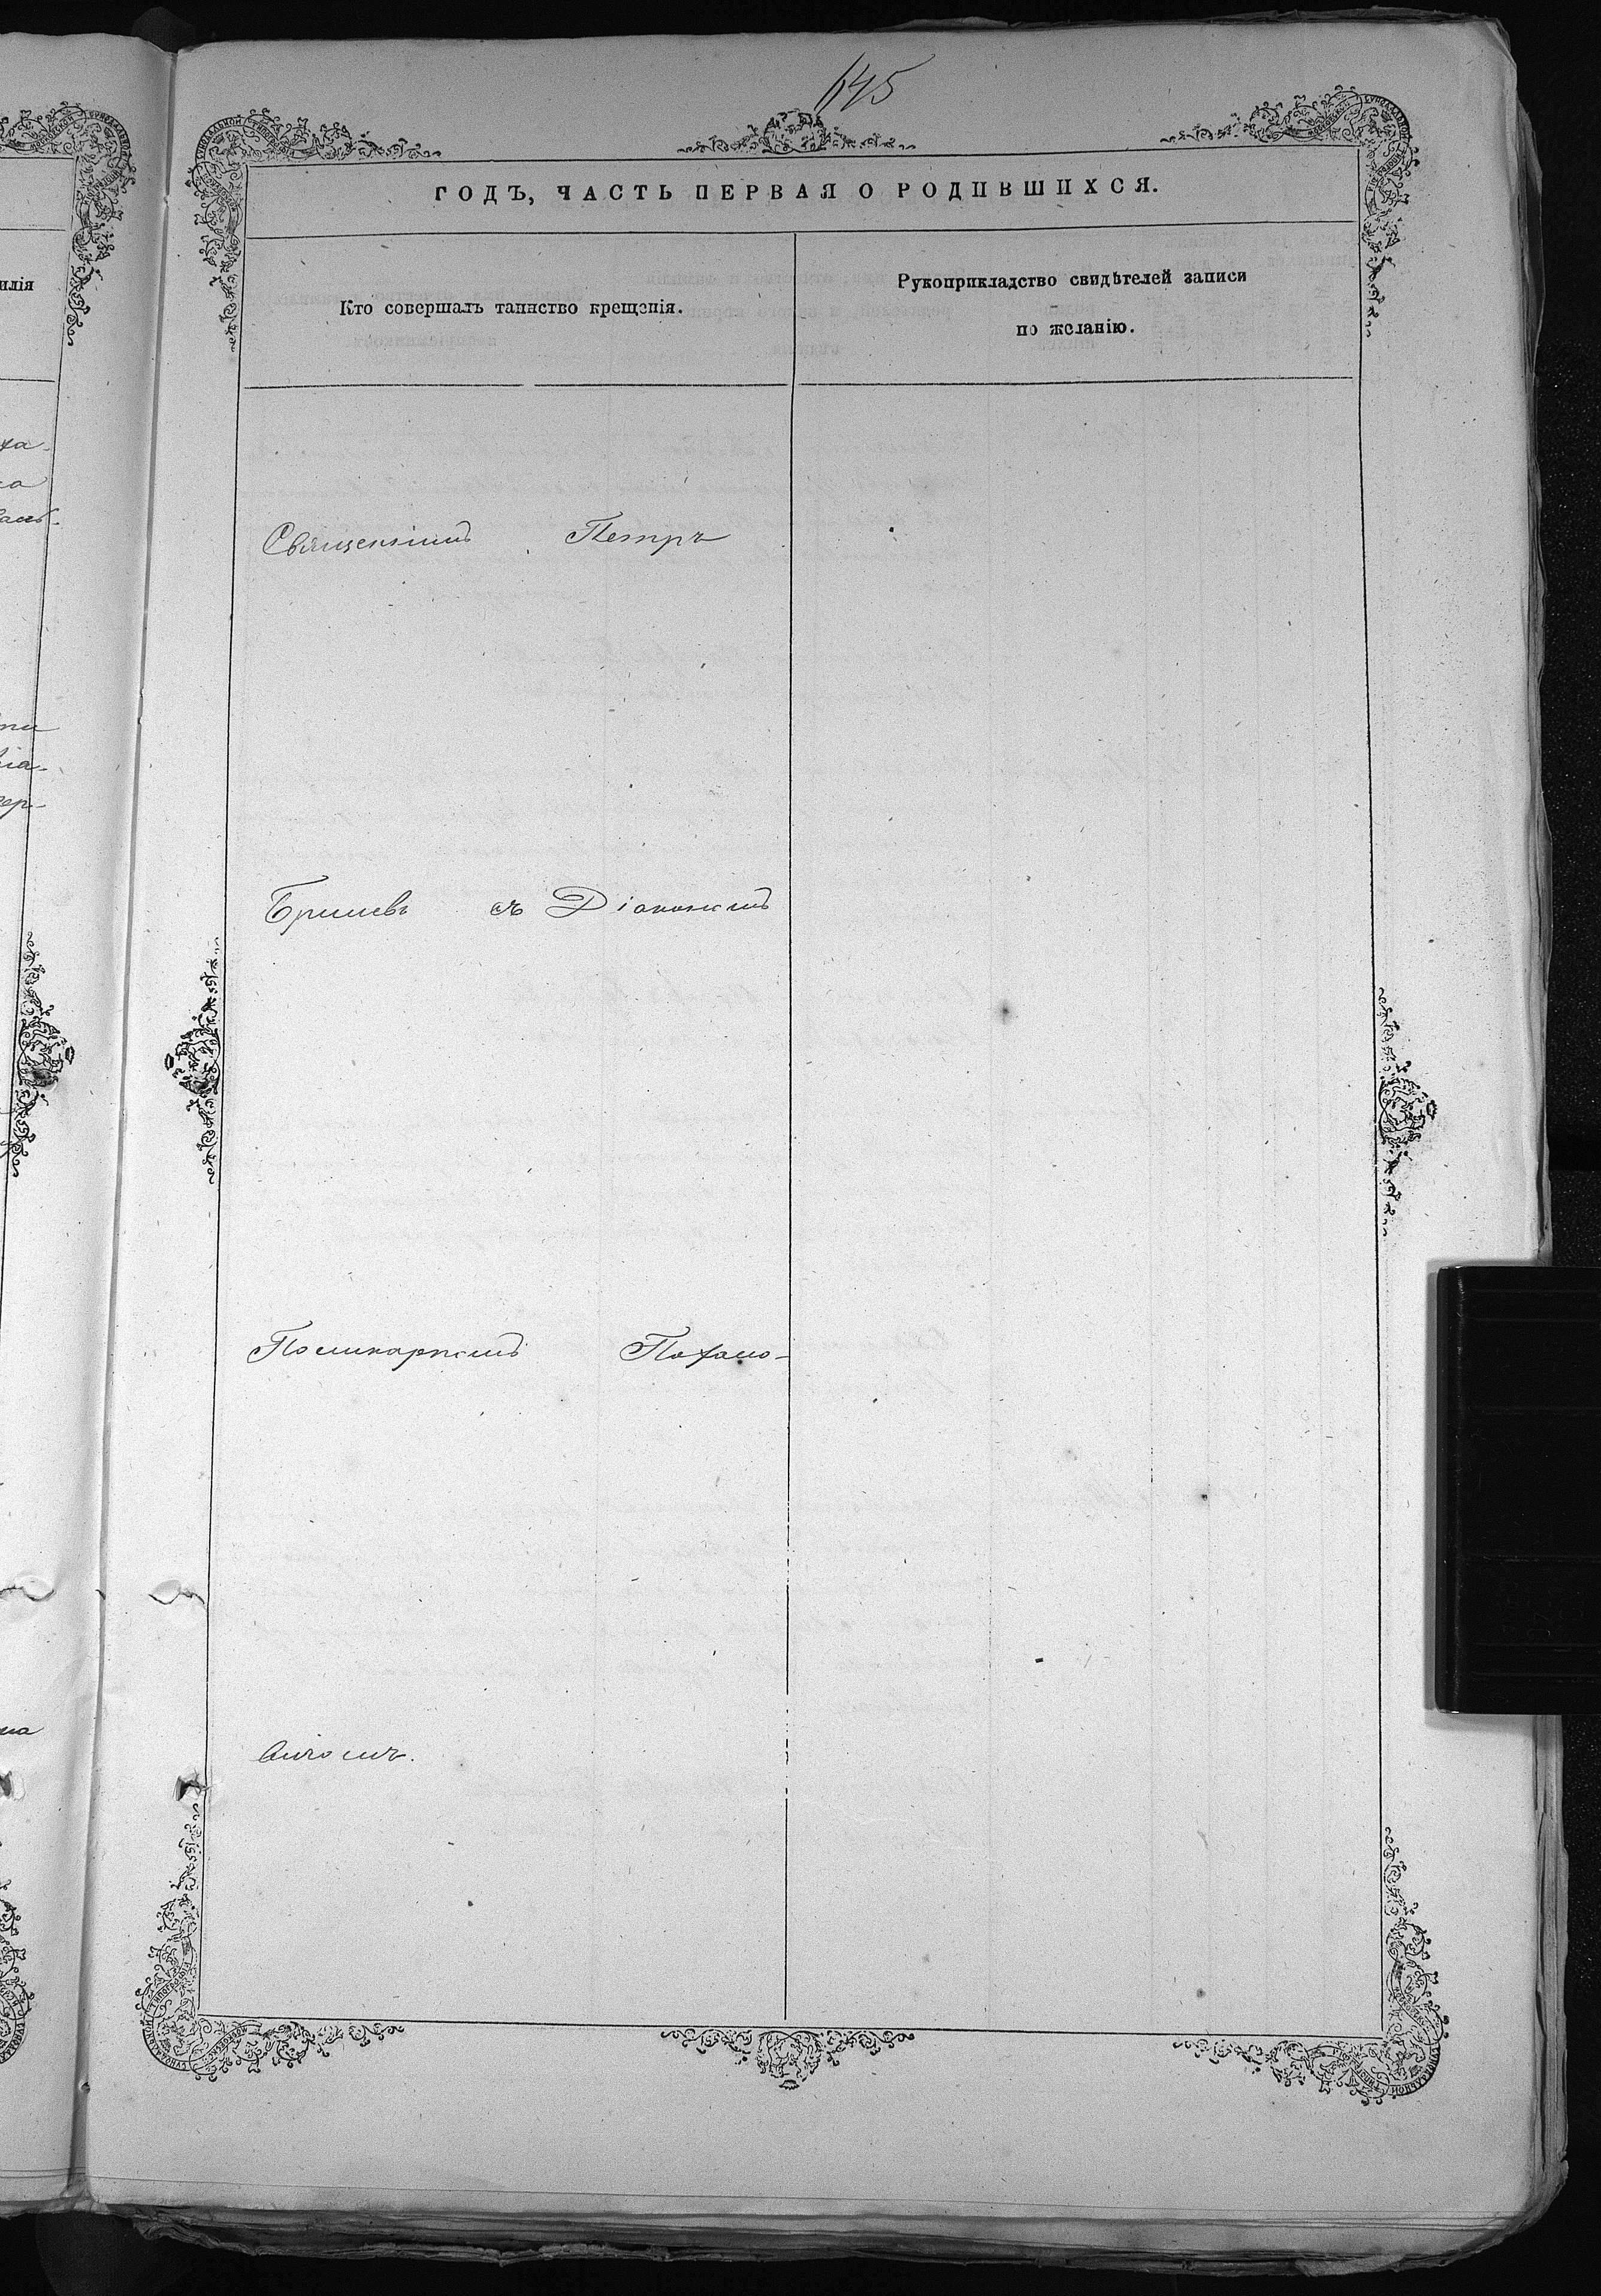 645
ГОДЪ, ЧАСТЬ ПЕРВАЯ О РОДИВШИХСЯ.
илія
Кто совершалъ таинство крещенія.
Рукоприкладство свидѣтелей записи
по желанію.
Священникъ Петръ
съ Діакономъ
Поликарпомъ Пахомо-
вичомъ.